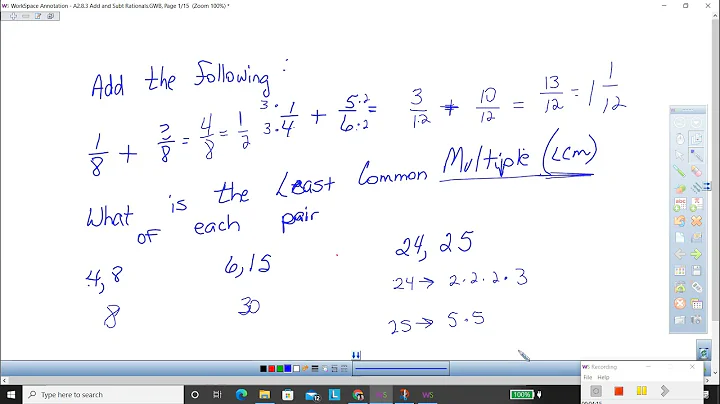 WorkSpace Annotation - A2.8.3 Add and Subt Rationals.GWB, Page 1/15 (Zoom 100%) *
Add the following:
1/8 + 3/8 = 4/8 = 1/2
3·1/3·4 + 5·2/6·2 = 3/12 + 10/12 = 13/12 = 1 1/12
What is the Least Common Multiple (LCM)
of each pair
4, 8 6, 15 24, 25
8 30 24 → 2·2·2·3
25 → 5·5
WS Recording
File Help
100%
Type here to search